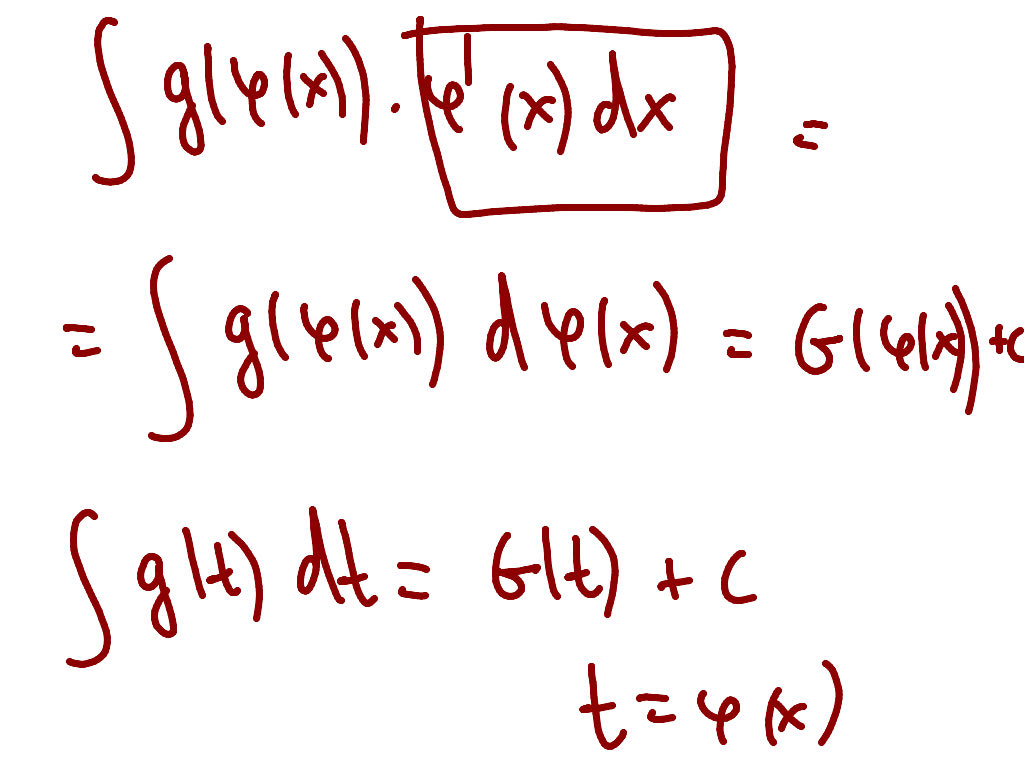 ∫ g(φ(x)) · φ'(x) dx =
= ∫ g(φ(x)) d φ(x) = G(φ(x)) + C
∫ g(t) dt = G(t) + C
t = φ(x)